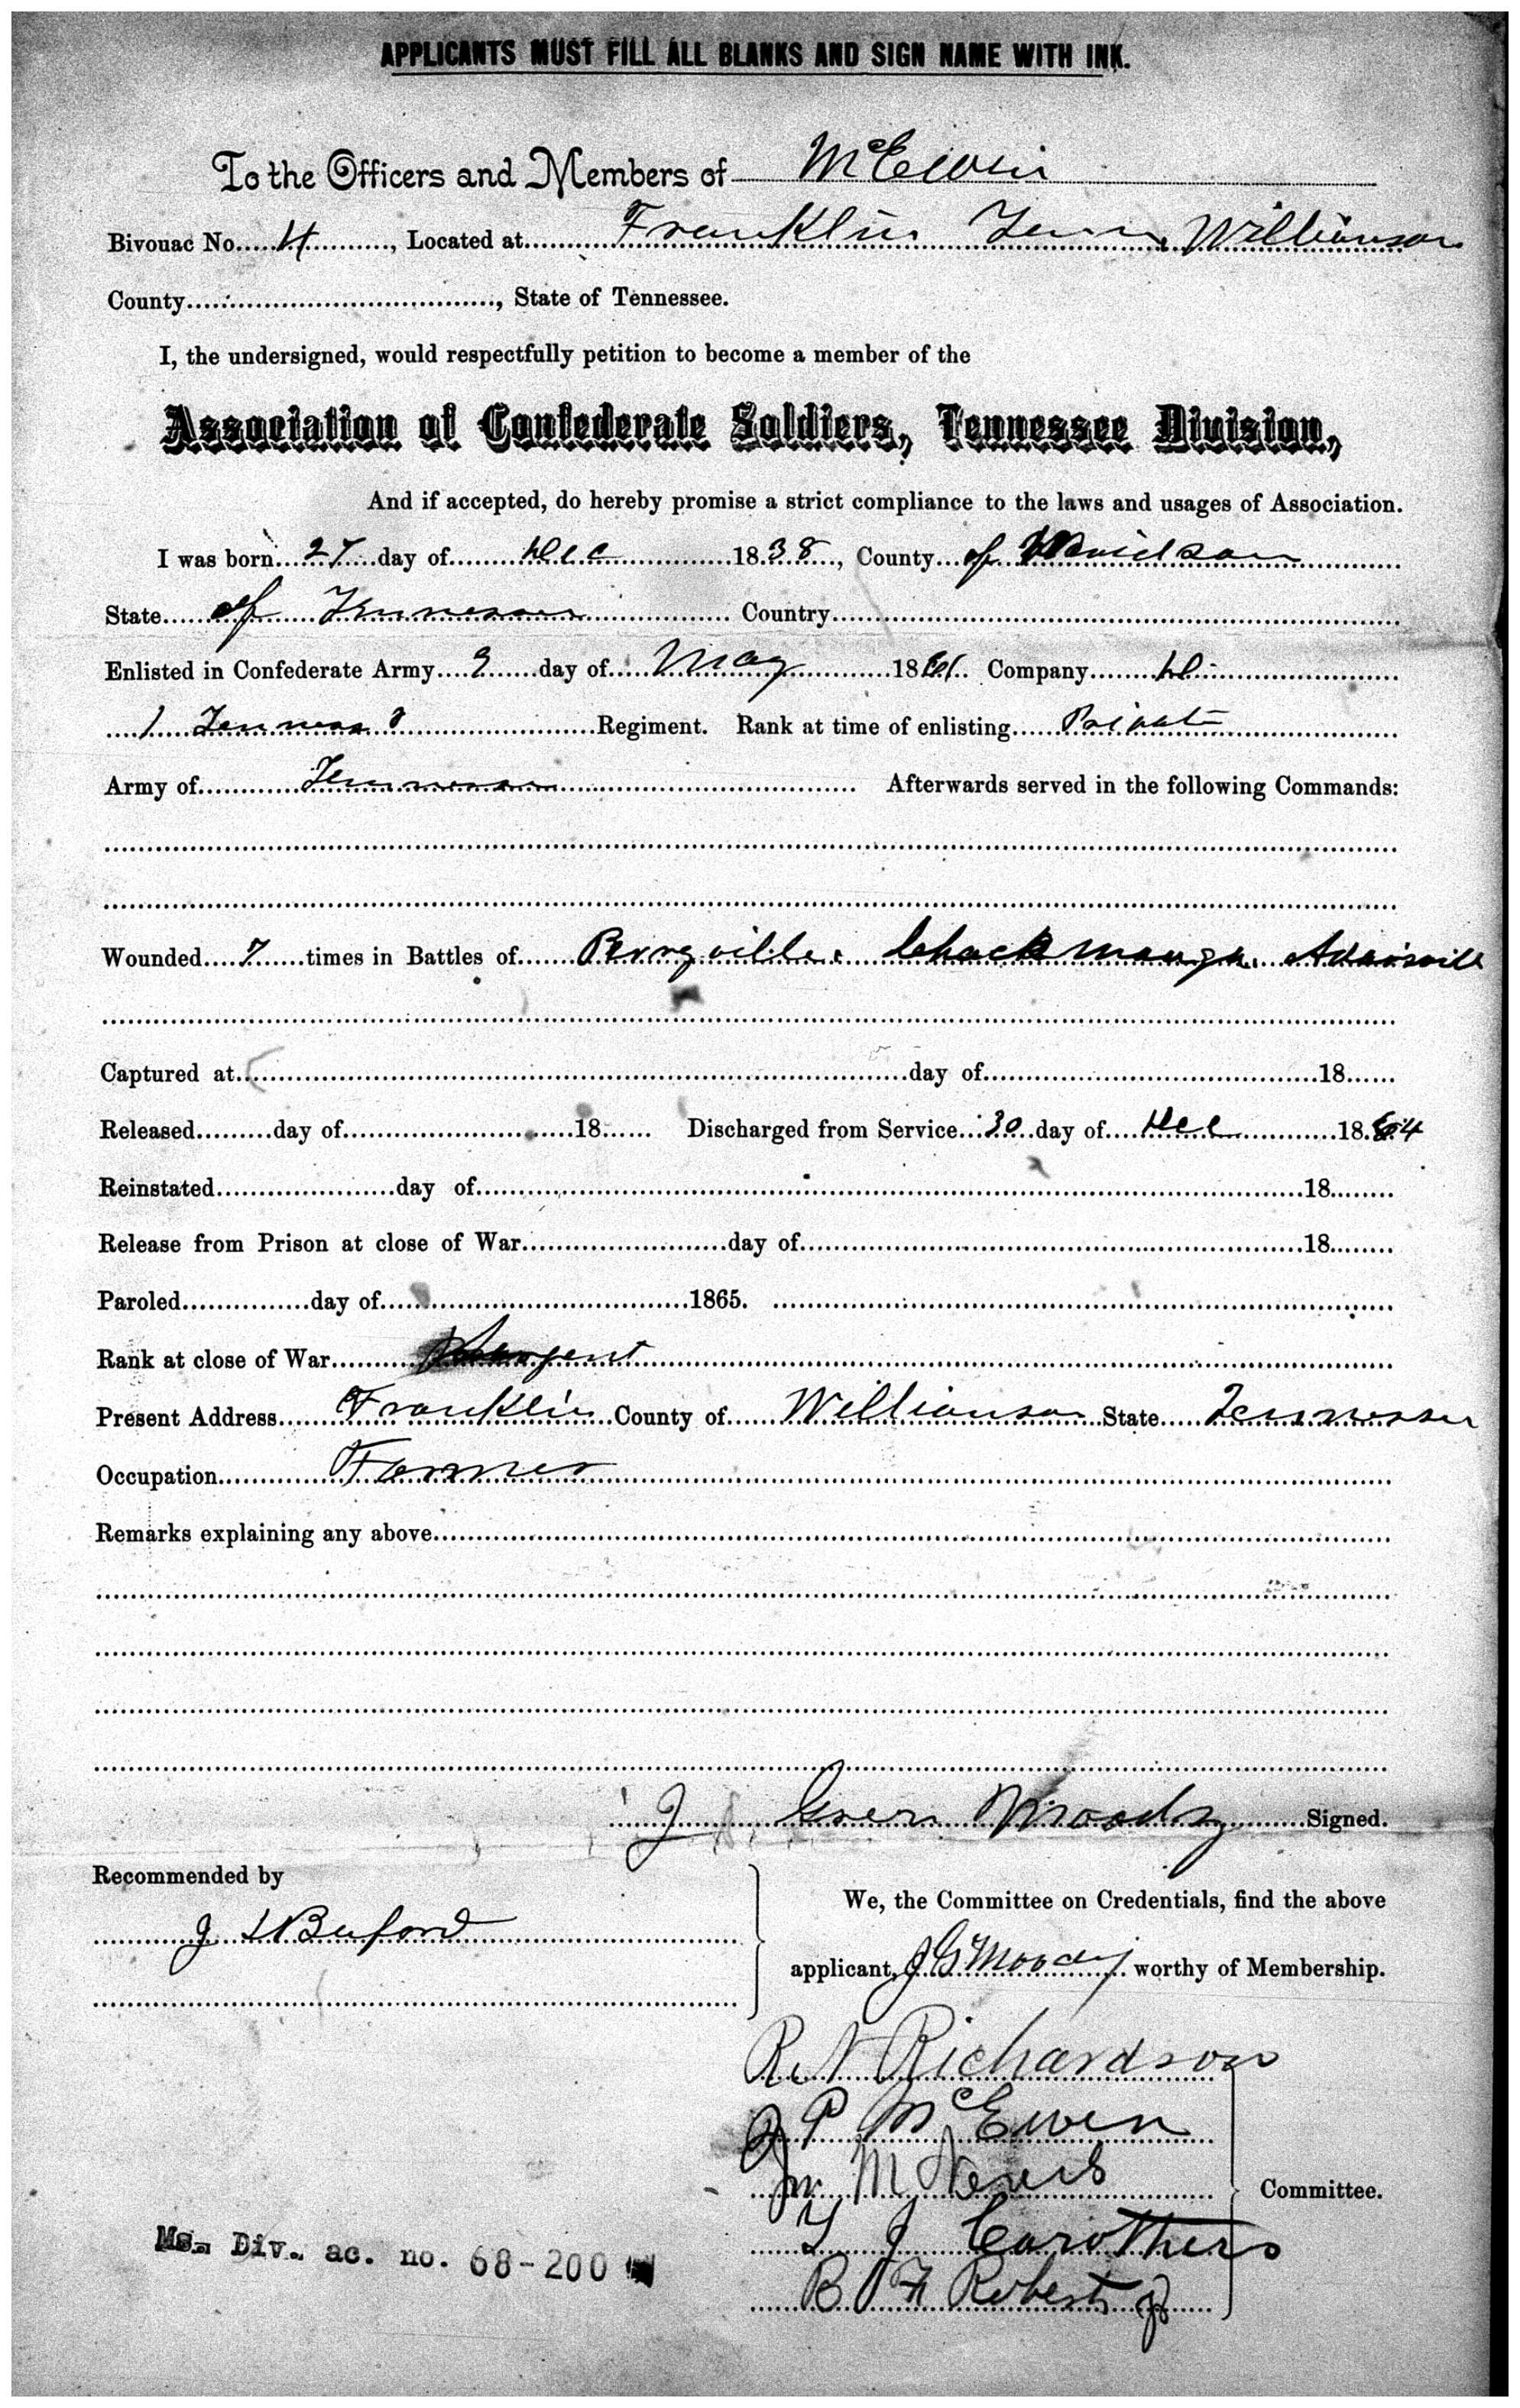 APPLICANTS MUST FILL ALL BLANKS AND SIGN NAME WITH INK.
To the Officers and Members of McEwin
Bivouac No. 4, Located at Franklin Tenn, Williamson
County, State of Tennessee.
I, the undersigned, would respectfully petition to become a member of the
Association of Confederate Soldiers, Tennessee Division,
And if accepted, do hereby promise a strict compliance to the laws and usages of Association.
I was born 27 day of Dec 1838, County of Davidson
State of Tennessee Country
Enlisted in Confederate Army 9 day of May 1861 Company D
1 Tennessee Regiment. Rank at time of enlisting Private
Army of Tennessee Afterwards served in the following Commands:
Wounded 7 times in Battles of Perryville. Chackmauga. Adairsvill
Captured at day of 18
Released day of 18 Discharged from Service 30 day of Dec 1864
Reinstated day of 18
Release from Prison at close of War day of 18
Paroled day of 1865.
Rank at close of War Sergent
Present Address Franklin County of Williamson State Tennessee
Occupation Farmer
Remarks explaining any above
J Green Moody Signed.
Recommended by
We, the Committee on Credentials, find the above
J L Buford
applicant, J G Moody worthy of Membership.
R N Richardson
J P McEwen
M
Committee.
Carothers
Ms. Div. ac. no. 68-200
B F Roberts Jr